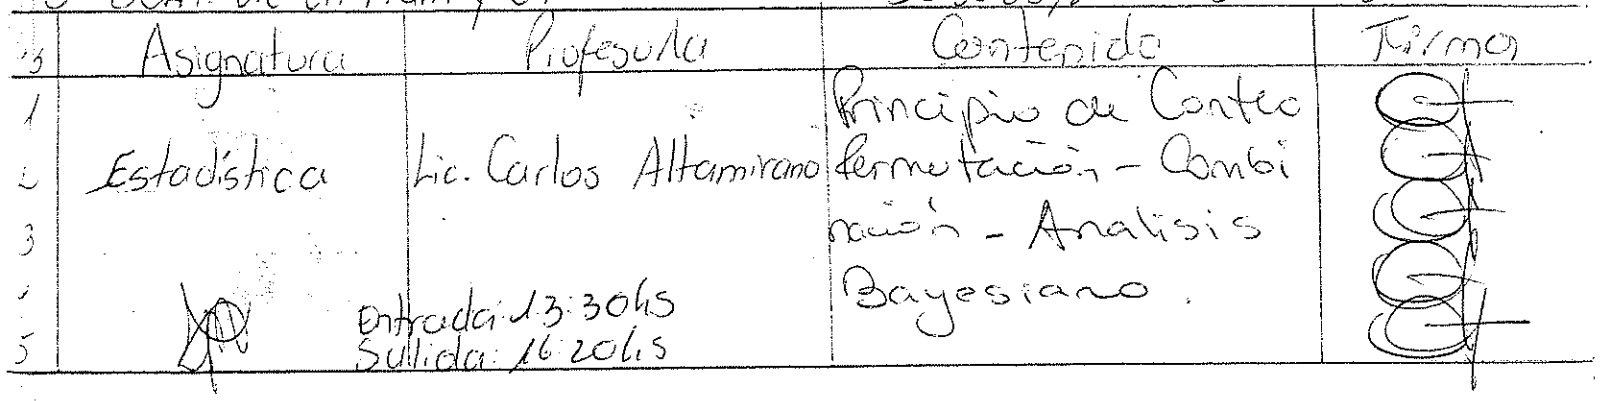 Asignatura Profesor/a Contenido Firma
1 Principio de Conteo
2 Estadística Lic. Carlos Altamirano Permutación - Combi
3 nación - Analisis
Bayesiano.
Entrada: 13:30hs
5 Sallida: 16:20hs